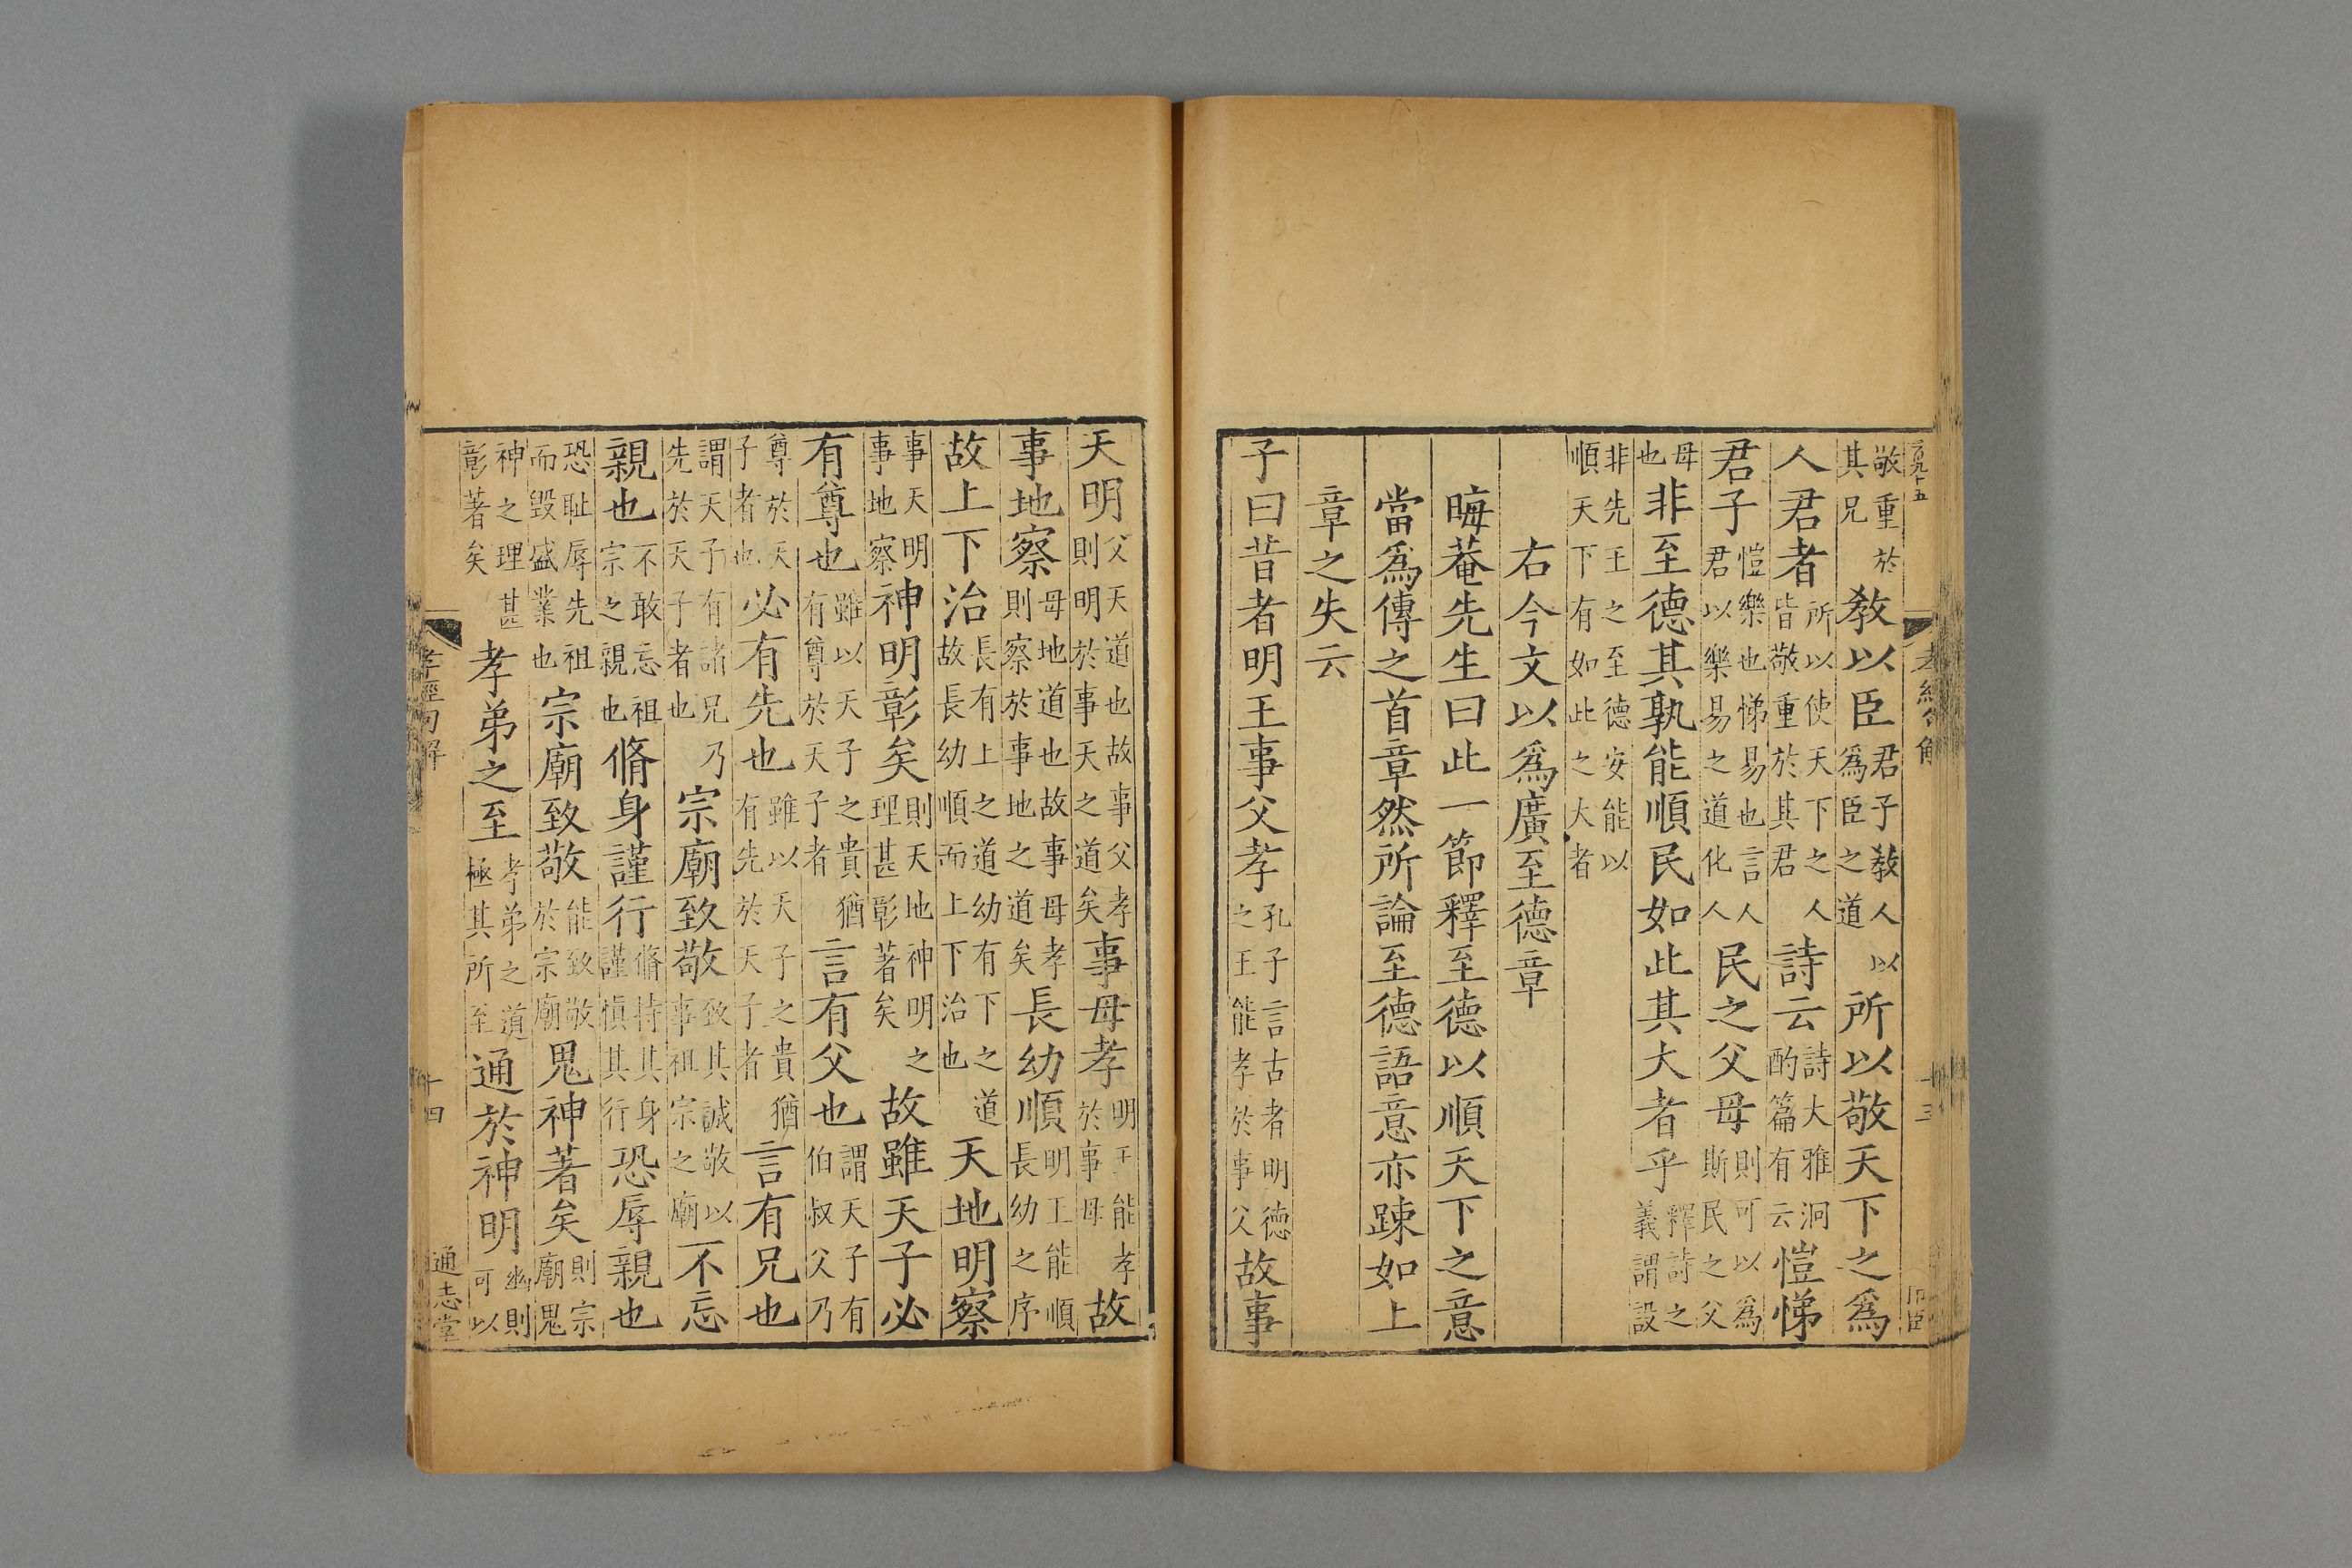 敬重於其兄教以臣君子教人以爲臣之道所以敬天下之爲
人君者所以使天下之人皆敬重於其君詩云詩大雅泂酌篇有云愷悌
君子愷樂也悌易也言人君以樂易之道化人民之父母則可以爲斯民之父
母也非至德其孰能順民如此其大者乎釋詩之義謂設
非先王之至德安能以順天下有如此之大者
右今文以爲廣至德章
晦菴先生曰此一節釋至德以順天下之意
當爲傳之首章然所論至德語意亦踈如上
章之失云
子曰昔者明王事父孝孔子言古者明德之王能孝於事父故事
天明父天道也故事父孝則明於事天之道矣事母孝明王能孝於事母故
事地察母地道也故事母孝則察於事地之道矣長幼順明王能順長幼之序
故上下治長有上之道幼有下之道故長長幼順而上下治也天地明察
事天明事地察神明彰矣則天地神明之理甚彰著矣故雖天子必
有尊也雖以天子之貴猶有尊於天子者言有父也謂天子有伯叔父乃
尊於天子者也必有先也雖以天子之貴猶有先於天子者言有兄也
謂天子有諸兄乃先於天子者也宗廟致敬致其誠敬以事祖宗之廟不忘
親也不敢忘祖宗之親也脩身謹行脩持其身謹慎其行恐辱親也
恐耻辱先祖而毀盛業也宗廟致敬能致敬於宗廟鬼神著矣則宗廟鬼
神之理甚彰著矣孝弟之至孝弟之道極其所至通於神明幽則可以
孝經句解
十三
孝經句解
十四
通志堂